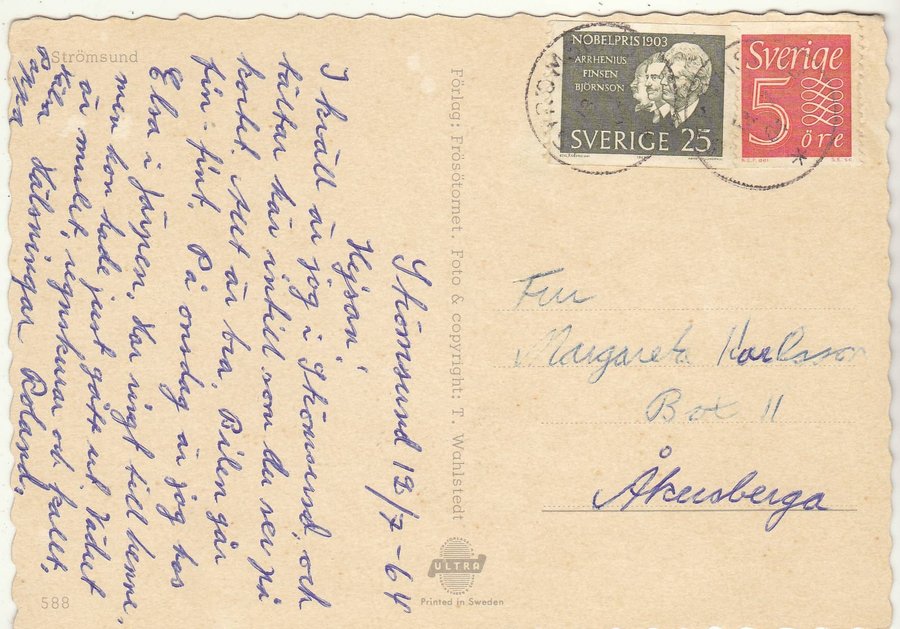 Strömsund
Strömsund 12/7-64
Hejsan!
I kväll är jag i Strömsund, och
tältar här intill som du ser på
kortet. Allt är bra. Bilen går
fin-fint. På onsdag är jag hos
Elsa i Järpen. Har ringt till henne,
men hon hade just gått ut. Vädret
är mulet, regnskurar och kallt.
Kära Hälsningar Roland.
588
Förlag: Frösötornet Foto & copyright: T. Wahlstedt
ULTRA
Printed in Sweden
NOBELPRIS 1903
ARRHENIUS
FINSEN
BJÖRNSON
SVERIGE 25
Sverige
5
öre
STRÖMS
Fru
Margareta Karlsson
Box 11
Åkersberga